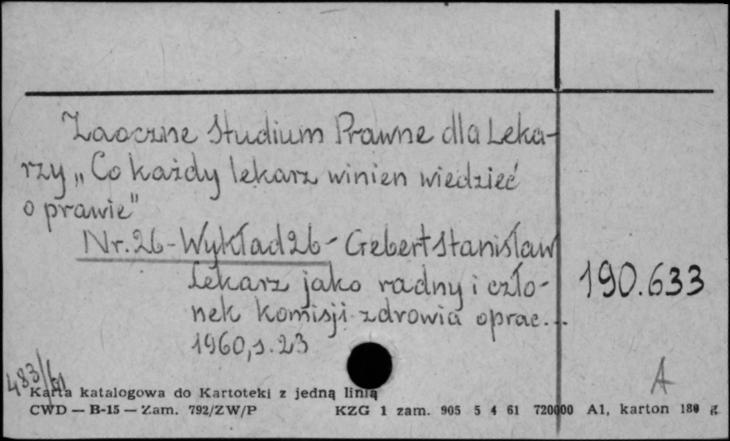 Zaoczne Studium Prawne dla Leka-
rzy „Co każdy lekarz winien wiedzieć
o prawie"
Nr. 26 - Wykład 26 - Gebert Stanisław
Lekarz jako radny i czło-
nek komisji zdrowia oprac...
1960, s. 23
190.633
483/61
A
Karta katalogowa do Kartoteki z jedną linią
CWD — B-15 — Zam. 792/ZW/P KZG 1 zam. 905 5 4 61 720000 A1, karton 180 g